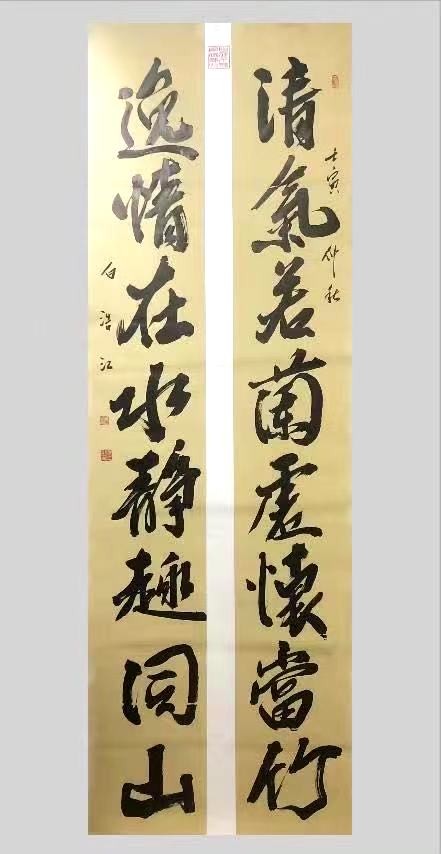 清氣若蘭虛懷當竹
壬寅仲秋
逸情在水靜趣同山
白浩江